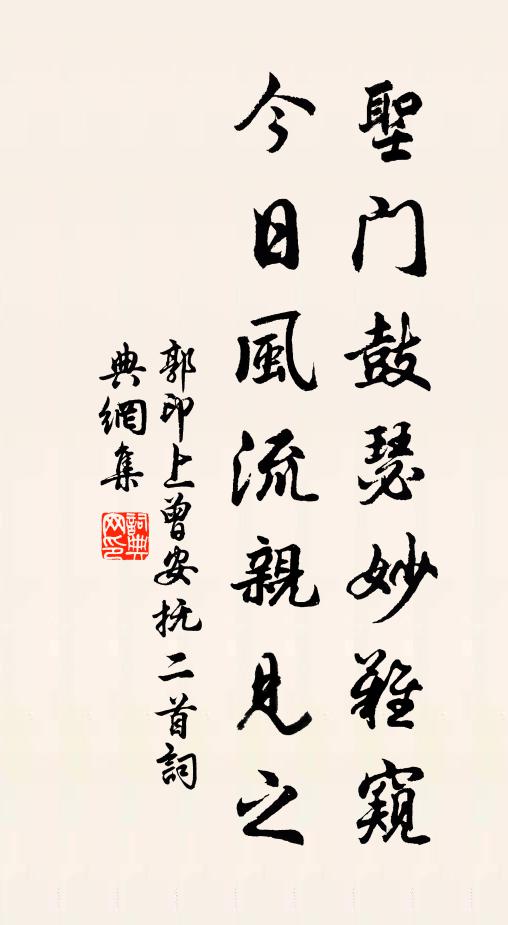 聖门鼓瑟妙難窺
今日風流親見之
郭印上曾安抚二首詞
典網集
詞典网印